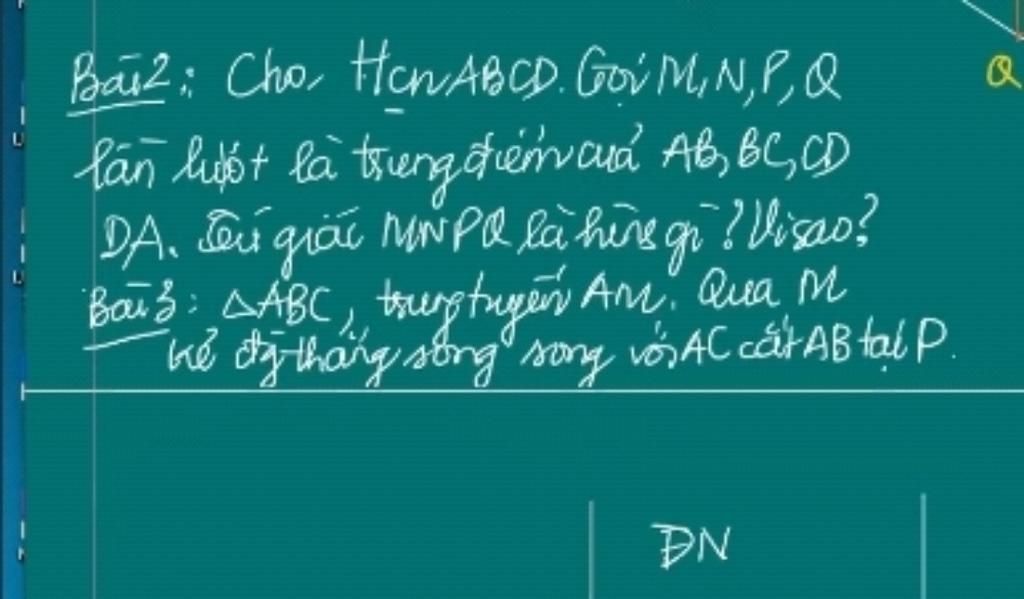 Q
Bài 2: Cho Hcn ABCD. Gọi M, N, P, Q
lần lượt là trung điểm của AB, BC, CD
DA. Tứ giác MNPQ là hình gì? Vì sao?
Bài 3: △ABC, trung tuyến AM. Qua M
kẻ đg thẳng song song với AC cắt AB tại P.
ĐN